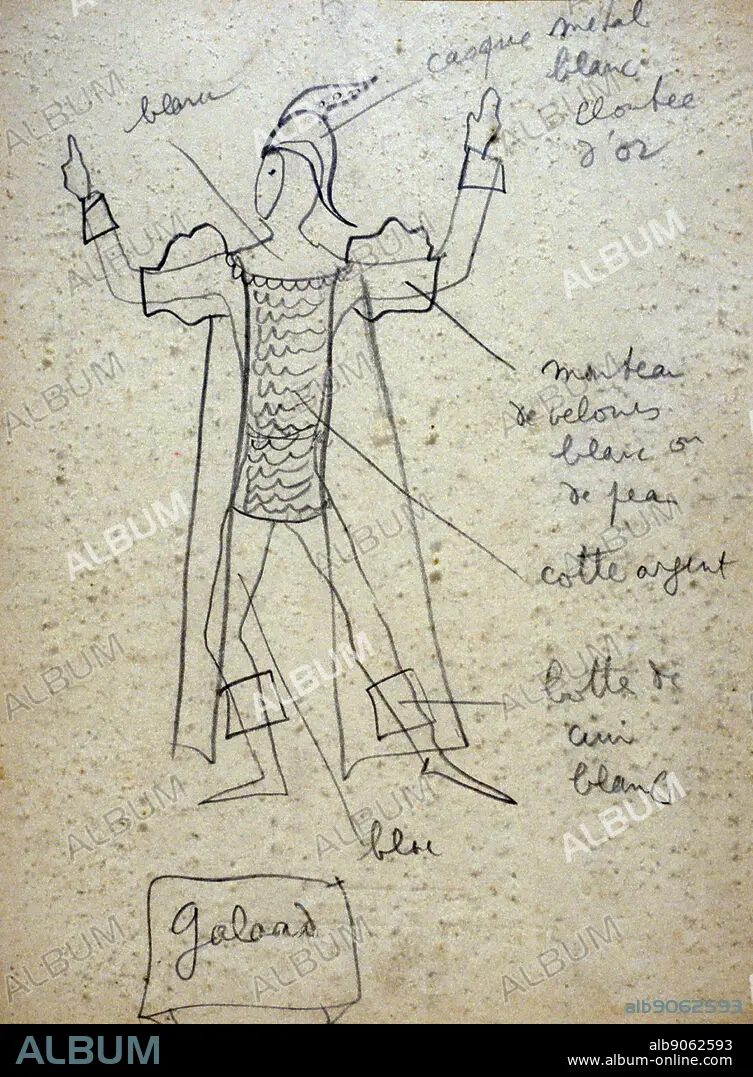 casque métal
blanc
cloutée
d'or
blanc
manteau
de velours
blanc ou
de peau
cotte argent
botte de
cuir
blanc
blanc
Galaad
ALBUM
alb9062593
ALBUM
alb9062593
www.album-online.com